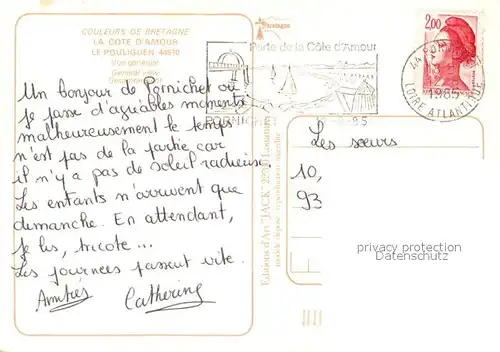 COULEURS DE BRETAGNE
LA COTE D'AMOUR
LE POULIGUEN 44510
Vue générale
General view
Gesamtansicht
Bretagne
Perle de la Côte d'Amour
PORNICHET
2,00
1985
LOIRE ATLANTIQUE
Un bonjour de Pornichet où
je passe d'agréables moments
malheureusement le temps
n'est pas de la partie car
il n'y a pas de soleil radieuse
Les enfants n'arrivent que
demanche. En attendant,
je lis, tricote ...
Les journées passent vite.
Amitiés Catherine
Editions d'Art "JACK" Louannec
modèle déposé reproduction interdite
Les sœurs
10,
93
privacy protection
Datenschutz